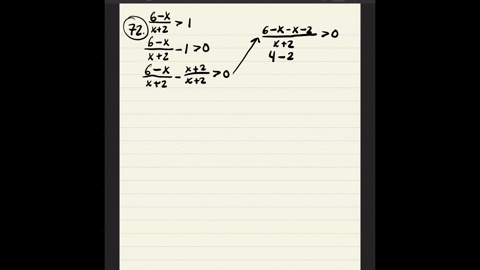 72. (6-x)/(x+2) > 1
(6-x)/(x+2) - 1 > 0
(6-x)/(x+2) - (x+2)/(x+2) > 0
(6-x-x-2)/(x+2) > 0
4-2